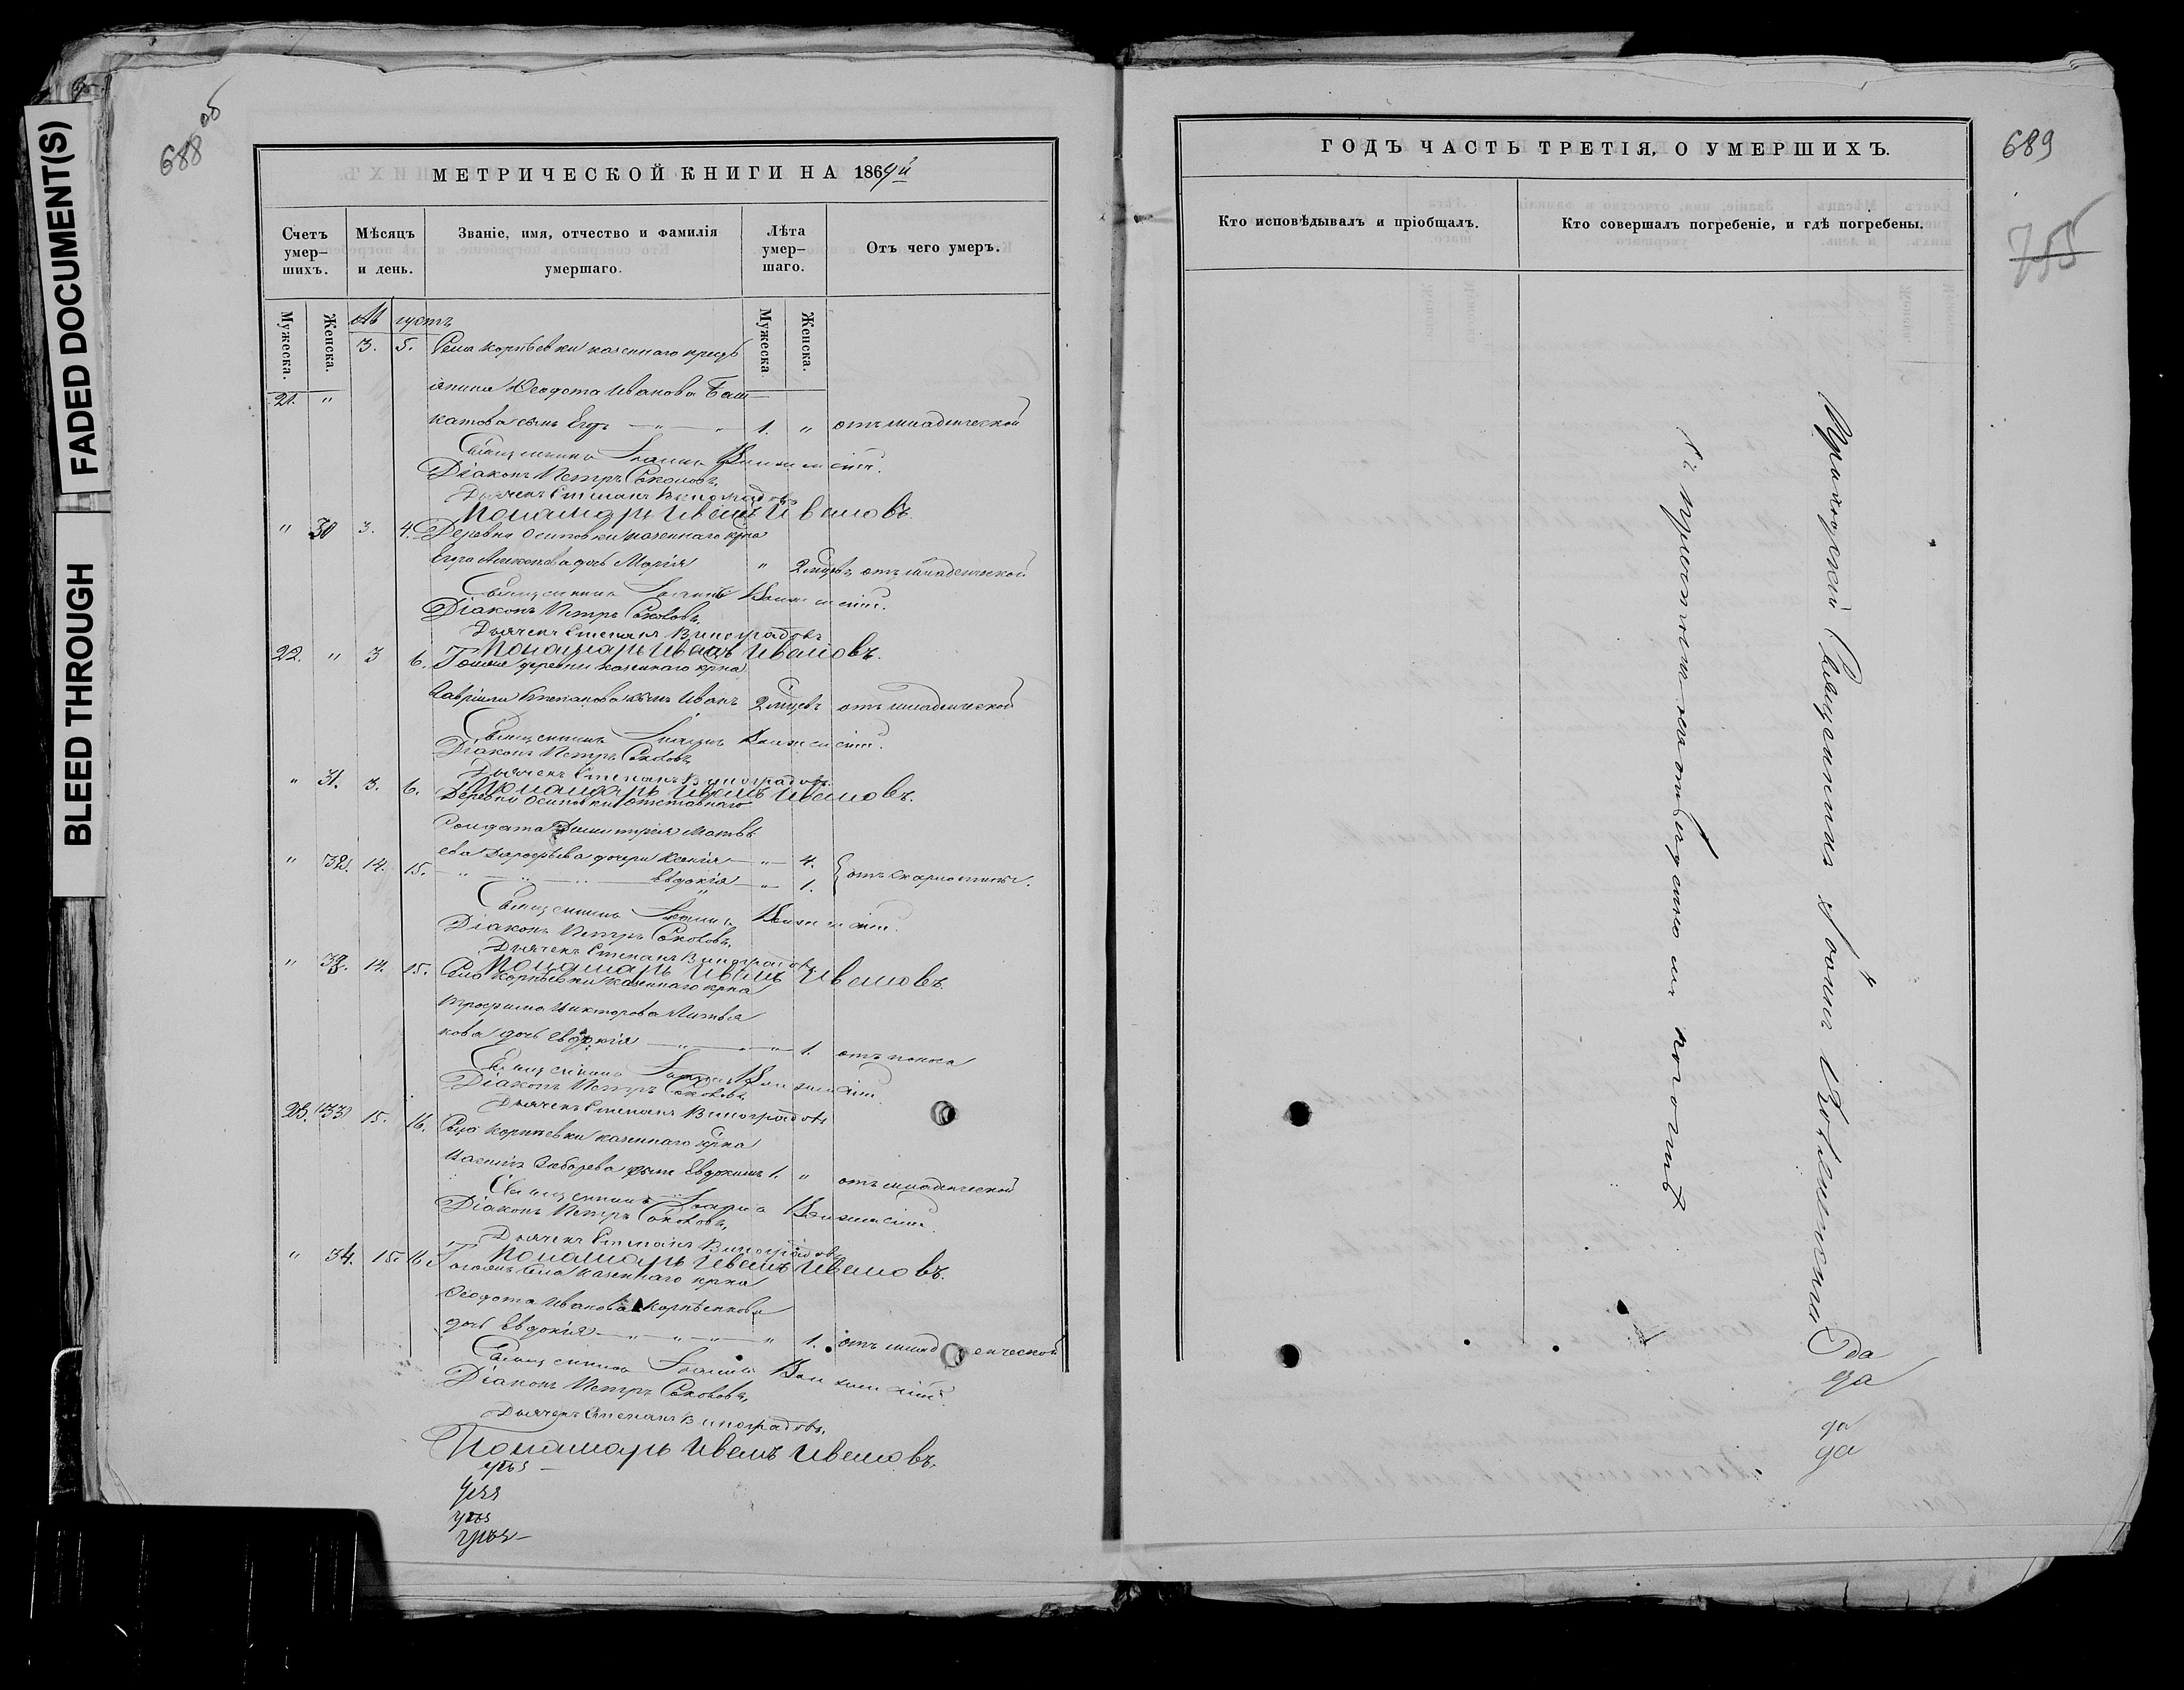 FADED DOCUMENT(S)
BLEED THROUGH
688 об
МЕТРИЧЕСКОЙ КНИГИ НА 1869й
Счетъ умер-шихъ.
Мѣсяцъ и день.
Званіе, имя, отчество и фамилія умершаго.
Лѣта умер-шаго.
Отъ чего умеръ.
Мужеска.
Женска.
Августъ
Мужеска
Женска.
3. 5. Села Корнѣевки казеннаго кресть
янина Ѳеодота Иванова Баш
21. "
катова сынъ Егоръ 1. " отъ младенческой
Священникъ Іоаннъ
Діаконъ Петръ Соколовъ.
Дьячекъ Степанъ Виноградовъ
Пономарь Иванъ Ивановъ.
" 30 3. 4. Деревни Осиповки казеннаго крна
Егора дочь Марія " 2 мцовъ отъ младенческой
Священникъ Іоаннъ
Діаконъ Петръ Соколовъ,
Дьячекъ Степанъ Виноградовъ
Пономарь Иванъ Ивановъ.
22. " 3 6. Тоже деревни казеннаго крна
Гавріила Степанова сынъ Иванъ 2 мцевъ отъ младенческой
Священникъ Іоаннъ
Діаконъ Петръ Соколовъ
Дьячекъ Степанъ Виноградовъ.
Пономарь Иванъ Ивановъ.
" 31. 3. 6. Деревни Осиповки отставнаго
Солдата Димитрія Матвѣ
ева дочери Ксенія " 4.
" 32. 14. 15. Евдокія " 1. отъ скарлатины.
Священникъ Іоаннъ
Діаконъ Петръ Соколовъ,
Дьячекъ Степанъ Виноградовъ.
Пономарь Иванъ Ивановъ.
" 14. 15. Села Корнѣевки казеннаго крна
Трофима Викторова Литвя
кова дочь Евдокія " 1. отъ поноса
Священникъ Іоаннъ
Діаконъ Петръ Соколовъ
Дьячекъ Степанъ Виноградовъ
23. (33) 15. 16. Села Корнѣевки казеннаго крна
сынъ Евдокимъ 1. " отъ младенческой
Священникъ
Діаконъ Петръ Соколовъ,
Дьячекъ Степанъ Виноградовъ
Пономарь Иванъ Ивановъ.
" 34. 15. 16. Тогожъ села казеннаго крна
Ѳеодота Иванова Корнѣенкова
дочь Евдокія " 1. отъ младенческой
Священникъ Іоаннъ
Діаконъ Петръ Соколовъ,
Дьячекъ Степанъ Виноградовъ.
Пономарь Иванъ Ивановъ.
ГОДЪ ЧАСТЬ ТРЕТІЯ, О УМЕРШИХЪ.
689
755
Кто исповѣдывалъ и пріобщалъ.
Кто совершалъ погребеніе, и гдѣ погребены.
Приходскій Священникъ Іоаннъ
съ причтомъ на отведенномъ погостѣ
да
да
да
да